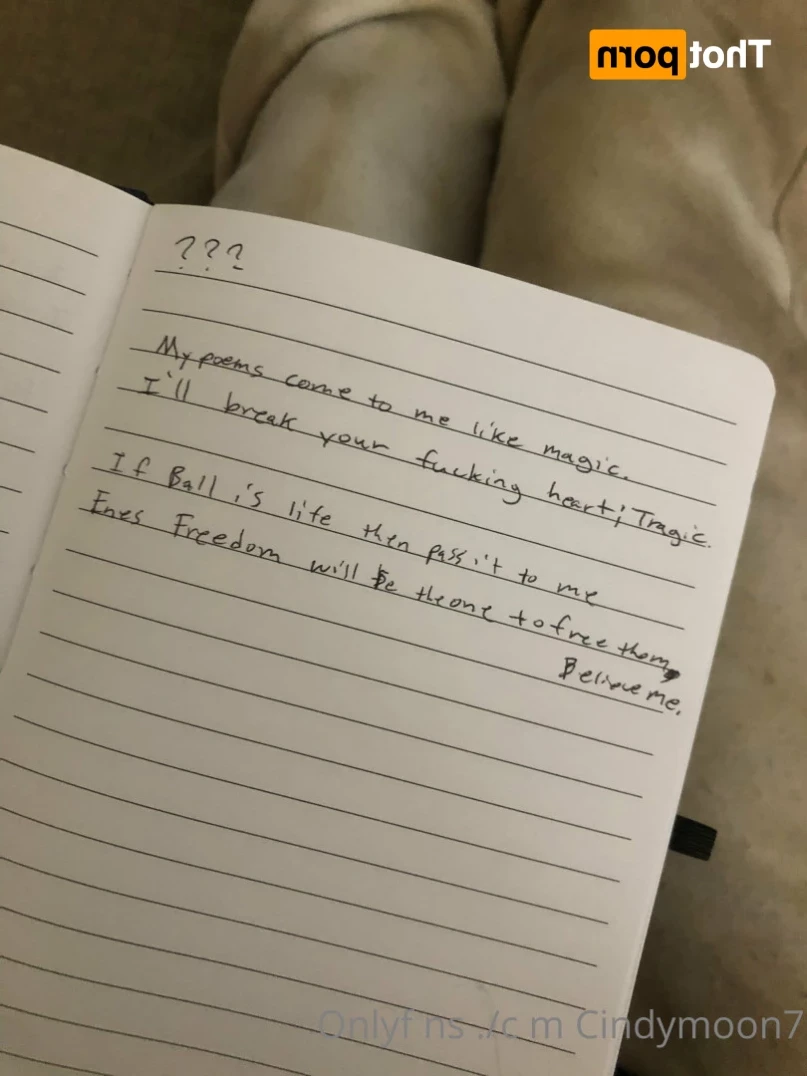 Thot porn
???
My poems come to me like magic.
I'll break your fucking heart; Tragic.
If Ball is life then pass it to me
Enes Freedom will be the one to free them,
Believe me.
Onlyf ns ./c m Cindymoon7